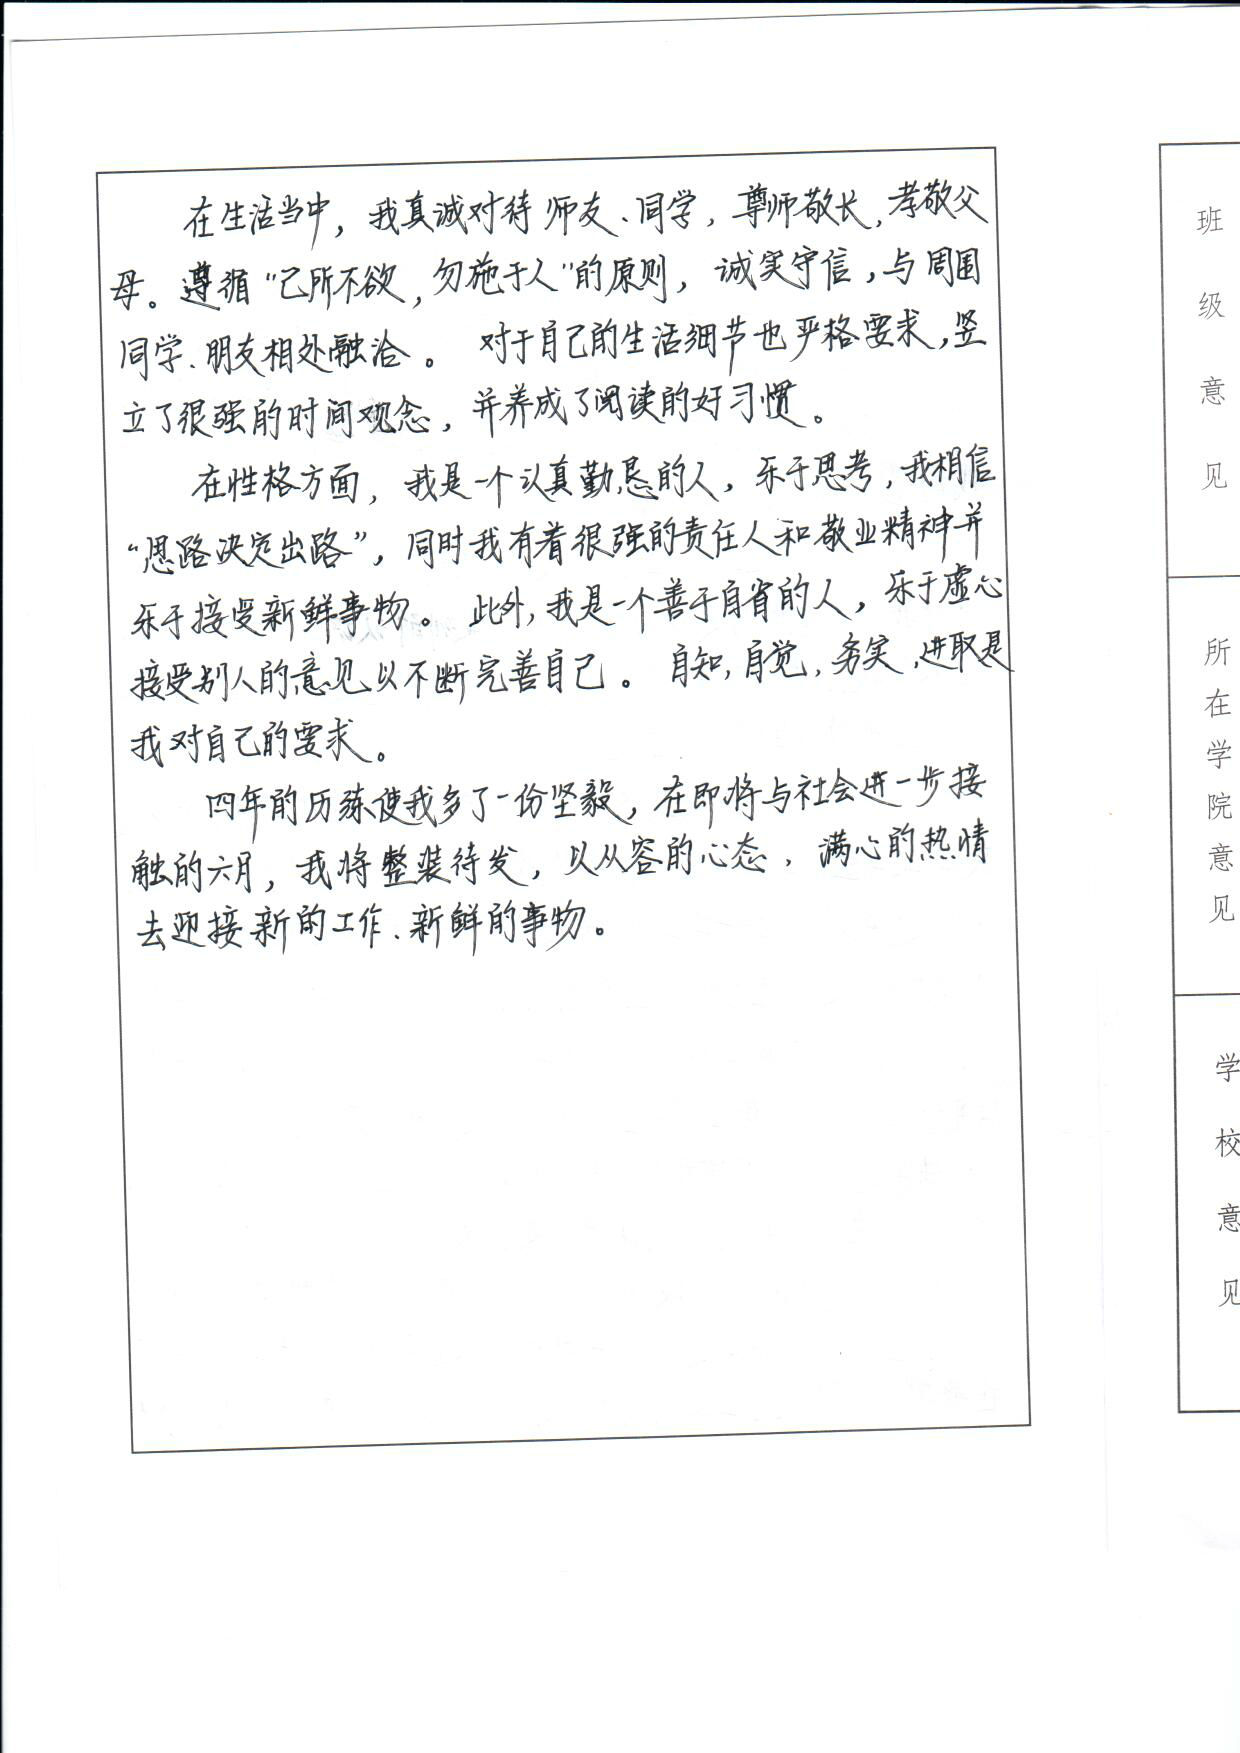 在生活当中，我真诚对待师友、同学，尊师敬长，孝敬父
母。遵循“己所不欲，勿施于人”的原则，诚实守信，与周围
同学、朋友相处融洽。对于自己的生活细节也严格要求，竖
立了很强的时间观念，并养成了阅读的好习惯。
在性格方面，我是一个认真勤恳的人，乐于思考，我相信
“思路决定出路”，同时我有着很强的责任人和敬业精神并
乐于接受新鲜事物。此外，我是一个善于自省的人，乐于虚心
接受别人的意见以不断完善自己。自知，自觉，务实，进取是
我对自己的要求。
四年的历练使我多了一份坚毅，在即将与社会进一步接
触的六月，我将整装待发，以从容的心态，满心的热情
去迎接新的工作、新鲜的事物。
班级意见
所在学院意见
学校意见